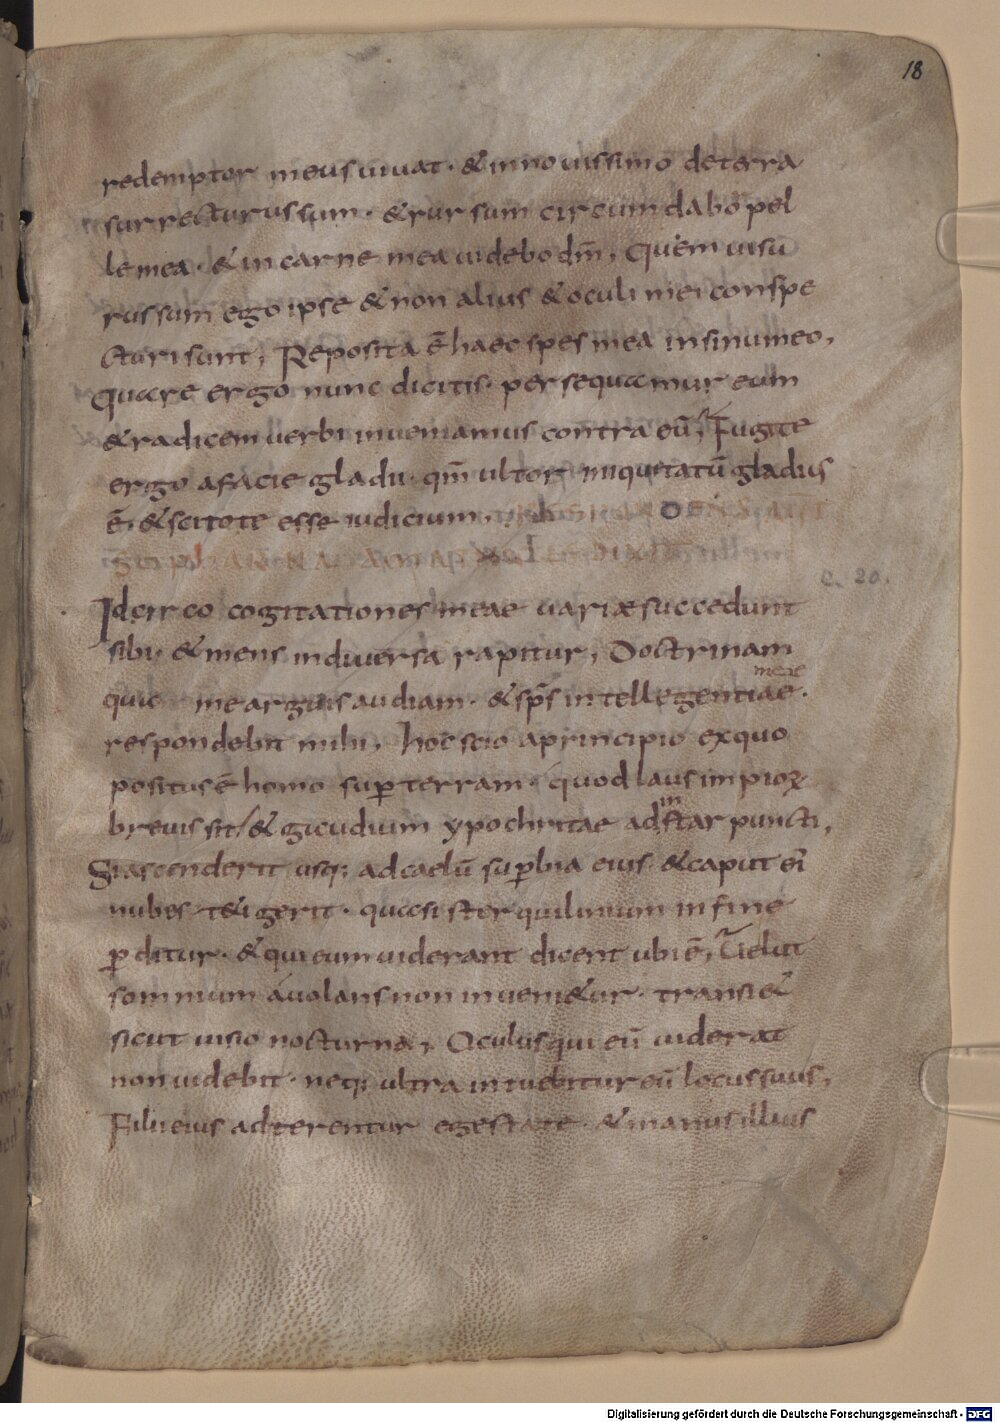 18
redemptor meus uiuat · & in nouissimo de terra
surrecturus sum · & rursum circumdabo pel
le mea · & in carne mea uidebo dm̄, Quem uisu
rus sum ego ipse & non alius & oculi mei conspe
cturi sunt, Reposita ē haec spes mea in sinu meo,
Quare ergo nunc dicitis · persequamur eum
& radicem uerbi inueniamus contra eū, Fugite
ergo a facie gladii · qm̄ ultor iniquitatū gladius
ē, & scitote esse iudicium,
C. 20.
Idcirco cogitationes meae uariæ succedunt
sibi · & mens in diuersa rapitur, Doctrinam
meae
qua me arguis audiam · & sp̄s intellegentiae ·
respondebit mihi, hoc scio a principio ex quo
positus ē homo sup terram · quod laus impioꝝ
breuis sit / & gaudium ypochritae ad instar puncti,
Si ascenderit usq; ad caelū supbia eius & caput ei
nubes tetigerit · quasi sterquilinium in fine
pditur · & qui eum uiderant dicent ubi ē, Uelut
somnium auolans non inueni&ur · transi&
sicut uisio nocturna, Oculus qui eū uiderat
non uidebit · neq; ultra intuebitur eū locus suus,
Filii eius adterentur egestate · & manus illius
Digitalisierung gefördert durch die Deutsche Forschungsgemeinschaft - DFG